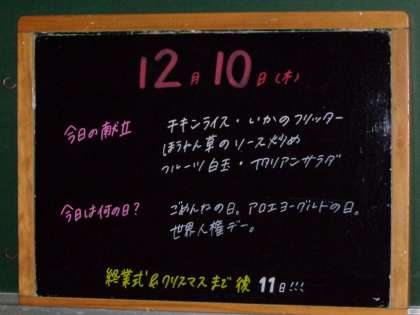 12月10日(木)
今日の献立 チキンライス・いかのフリッター
ほうれん草のソース炒め
フルーツ白玉・イタリアンサラダ
今日は何の日? ごめんねの日。アロエヨーグルトの日。
世界人権デー。
終業式&クリスマスまで後11日!!!